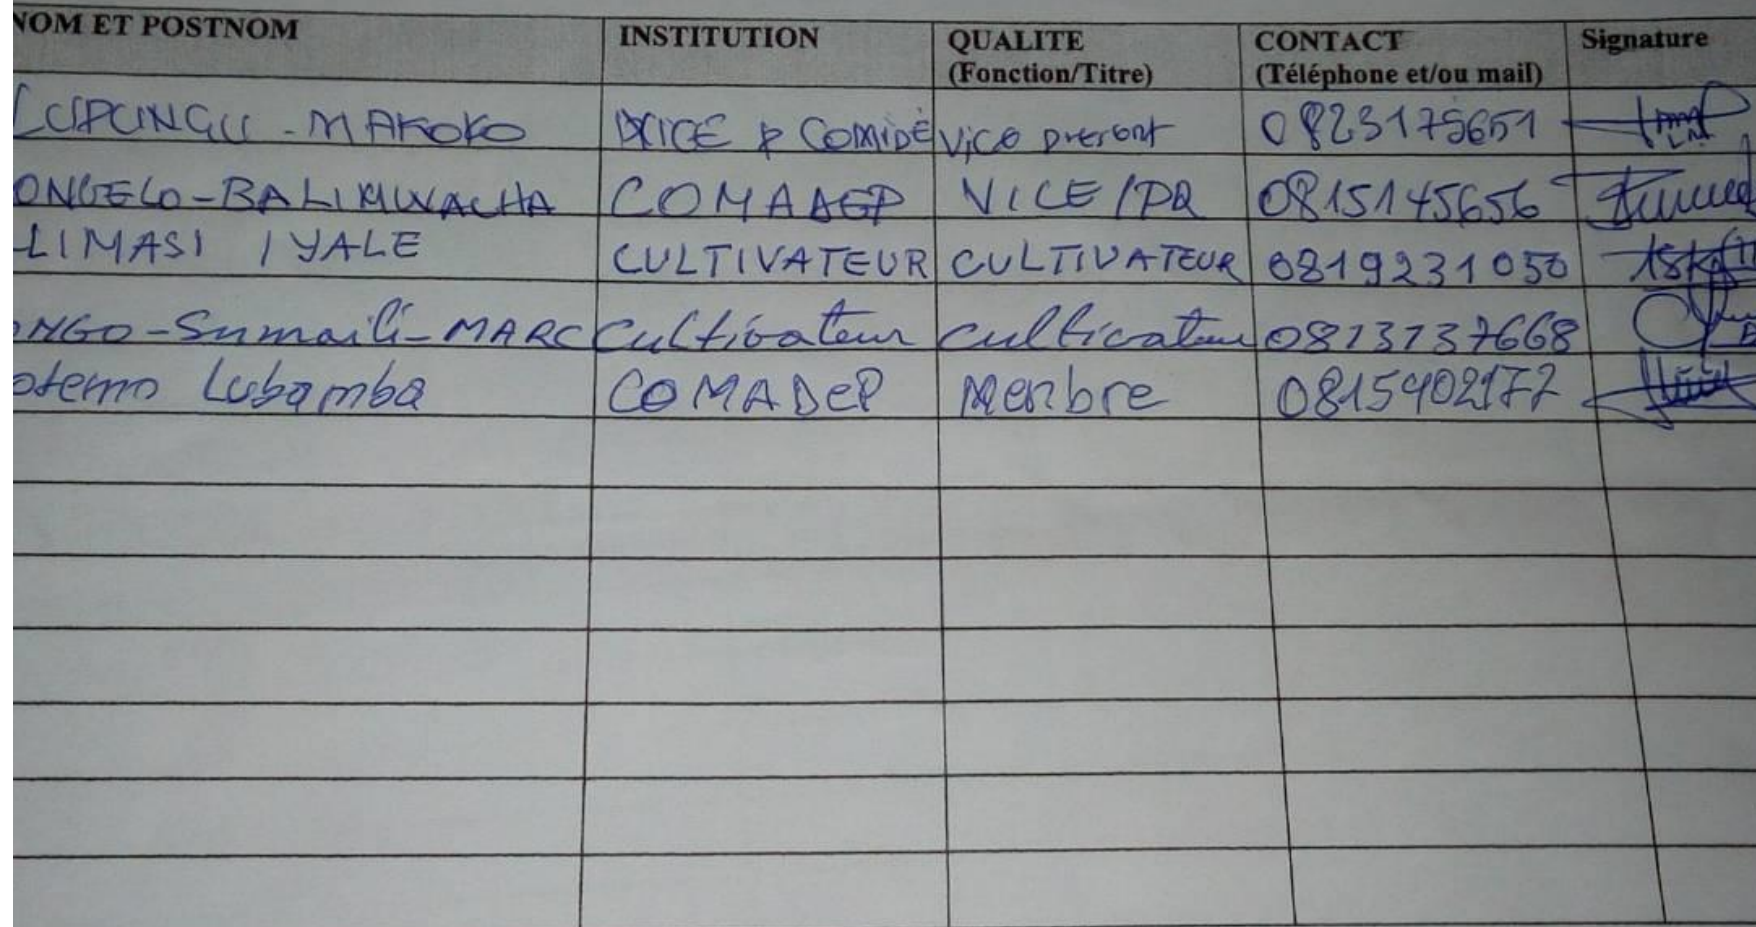 NOM ET POSTNOM INSTITUTION QUALITE CONTACT Signature
(Fonction/Titre) (Téléphone et/ou mail)
LUPUNGU - MAKOKO & COMIDE Vice present 0823175651
ONGELO-BALIMWACHA COMADEP VICE/PR 0815145656
LIMASI IYALE CULTIVATEUR CULTIVATEUR 0819231050
ONGO-Sumaili-MARC Cultivateur cultivateur 0813137668
otemo Lubamba COMADEP Menbre 0815902177